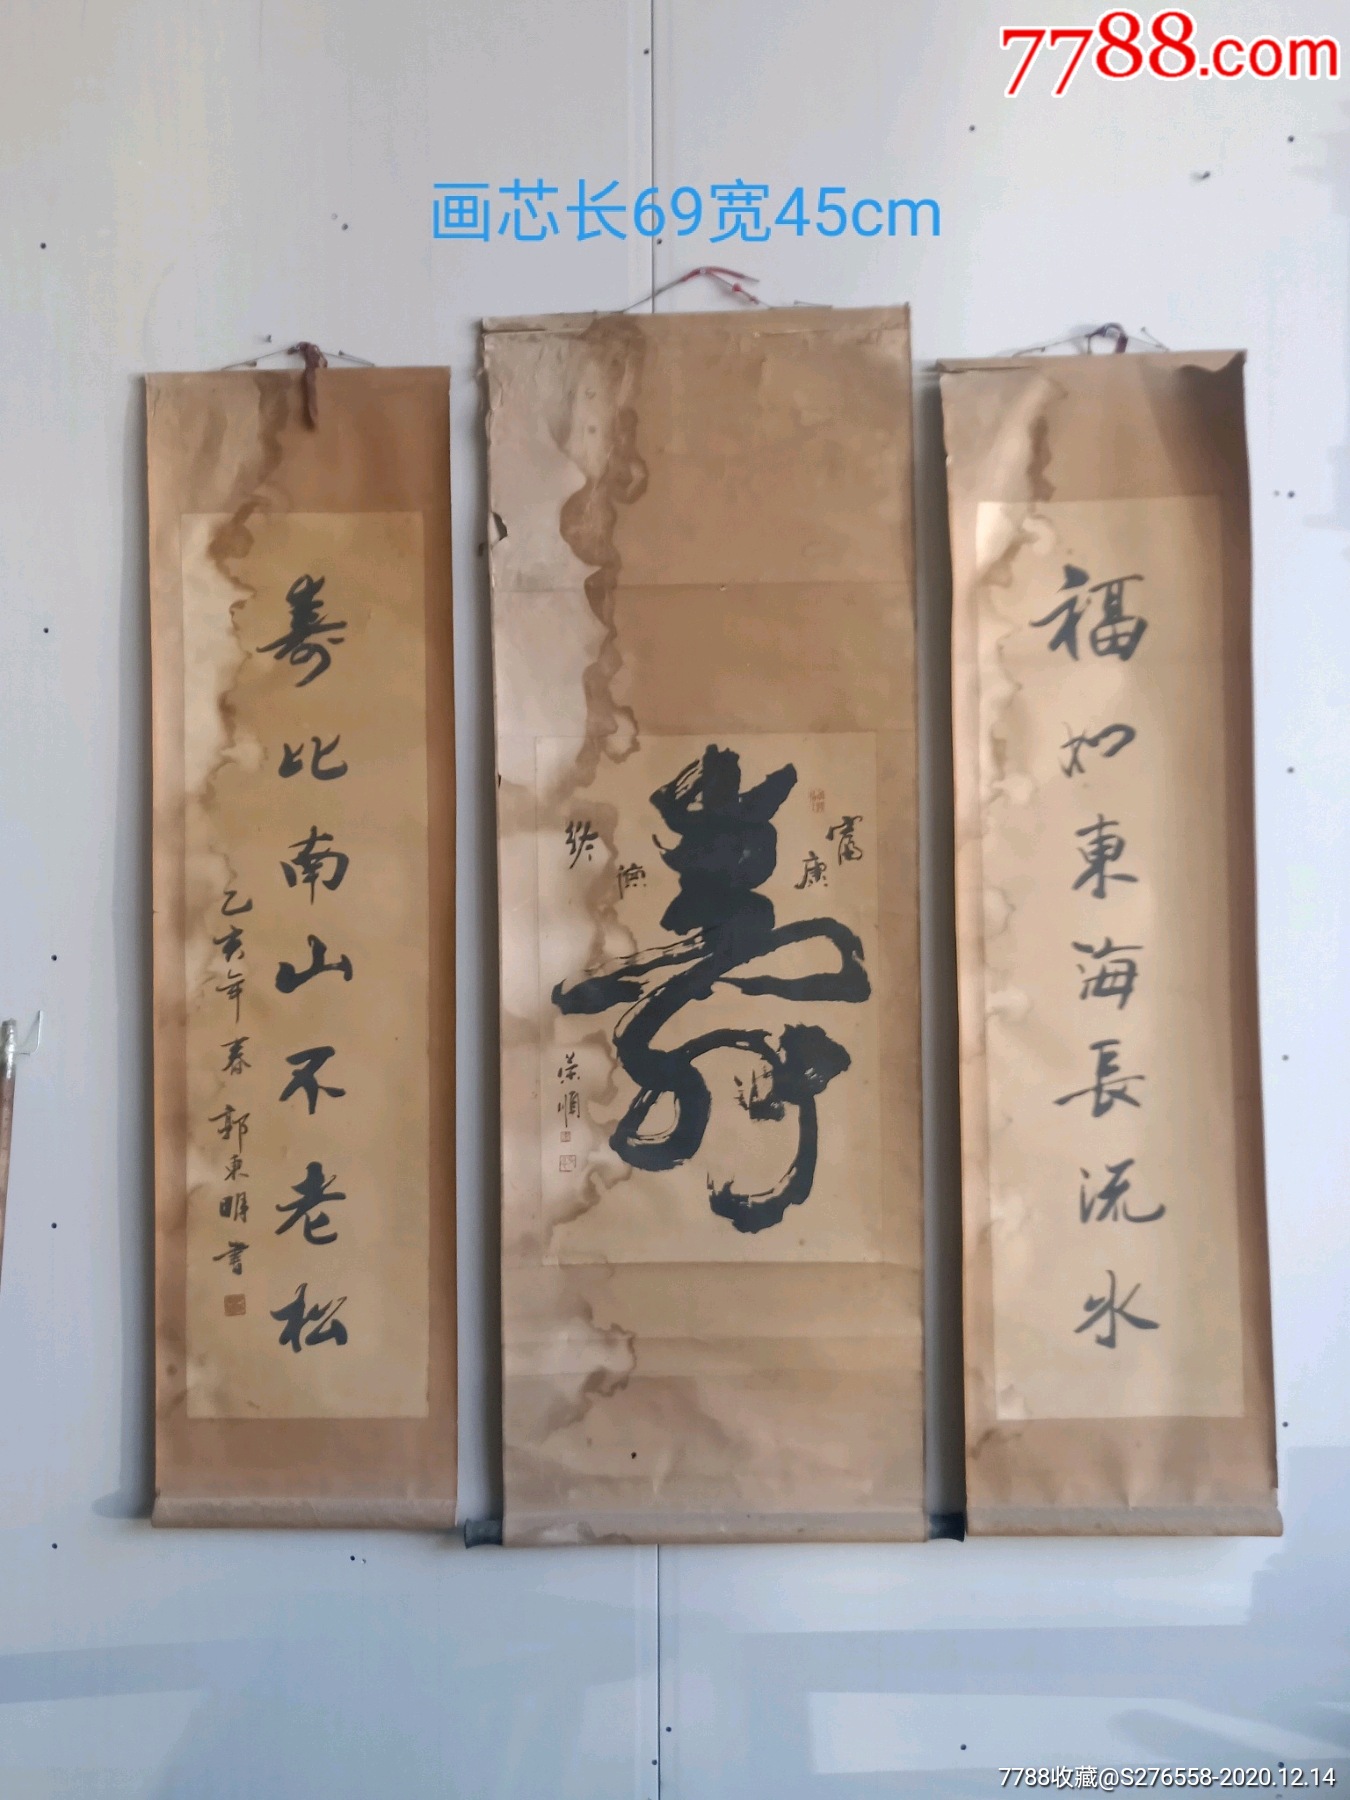 7788.com
画芯长69宽45cm
福如東海長流水
富康
寿
終
荣順
寿比南山不老松
乙亥年春 郭東明書
7788收藏@S276558-2020.12.14